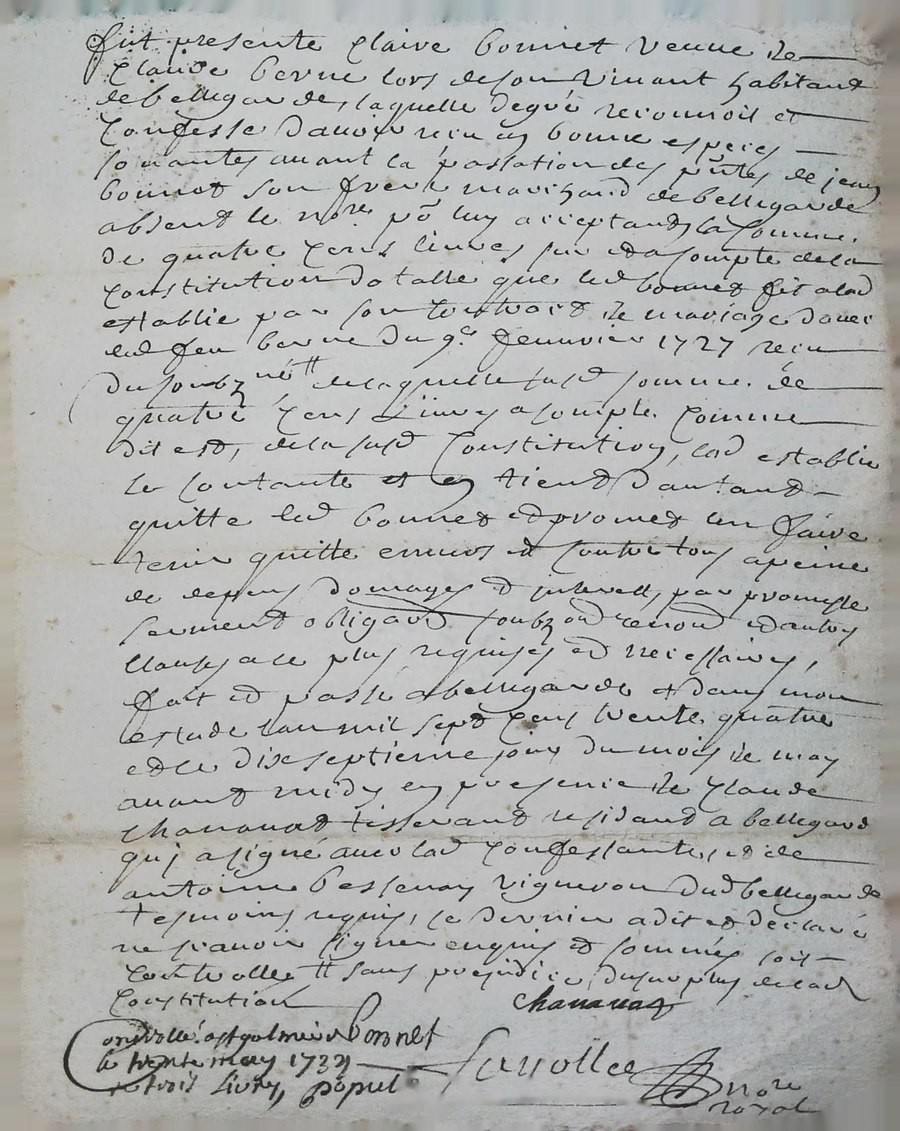 fut presente Claire bonnet veuve de
Claude berne lors de son vivant habitant
de bellegarde, laquelle de gré reconnoit et
Confesse d'avoir recu en bonne especes
sonantes avant la passation des pntes de jean
bonnet son frere marchand de bellegarde
absent le nore po luy acceptant la somme
de quatre cens livres sur et a compte de la
Constitution dotalle que led bonnet fit a lad
establie par son contract de mariage avec
led feu berne du 9e fevrier 1727 recu
du soubzné, de laquelle susd somme de
quatre cens Livres a compte Comme
dit est, de la susd Constitution, lad establie
se contante et en tient d'autant
quitte led bonnet et promet l'en faire
tenir quitte envers et contre tous a peine
de depens domages et interest, par promesse
serment obligaon soubz on renon et autres
Clauses a ce plus requises et necessaires,
fait et passé a bellegarde et dans mon
estude l'an mil sept cens trente quatre
et le dixseptieme jour du mois de may
avant midy en presence de Claude
Chavanat tisserant residant a bellegarde
qui a signé avec lad Confessante, et de
antoine bessenay vigneron dud bellegarde
tesmoins requis, ce dernier a dit et declaré
ne scavoir signer enquis et sommés soit
Controllee sans prejudice du surplus de lad
Constitution
Chavanat
Bonnet
Controllé a St galmier
le trente may 1734
r trois Livres,
nore
royal